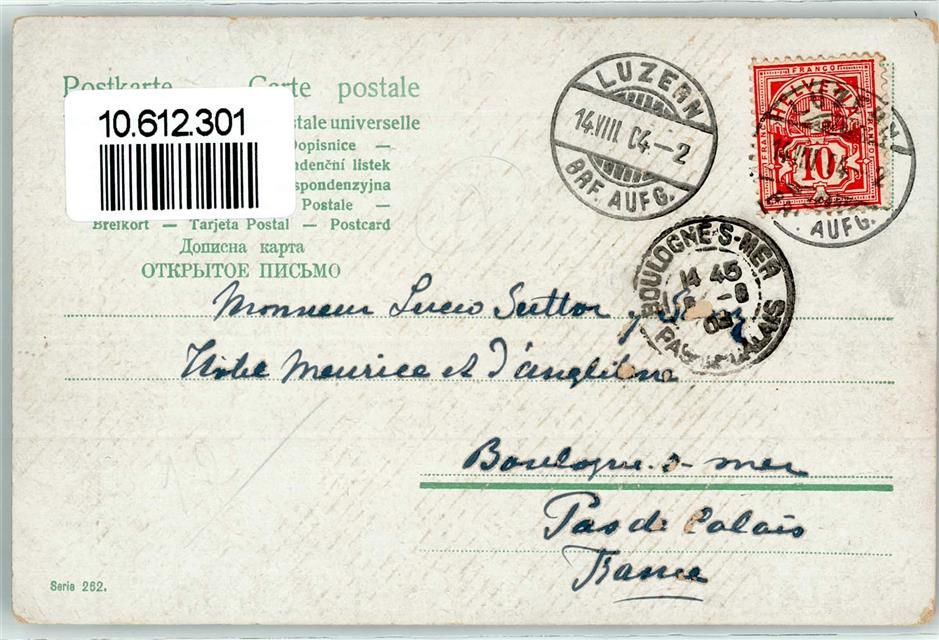 Postkarte Carte postale
10.612.301
tale universelle
Dopisnice —
denční listek
spondenzyjna
Postale —
Brefkort — Tarjeta Postal — Postcard
Дописна карта
ОТКРЫТОЕ ПИСЬМО
LUZERN
14.VIII.04.–2
BRF. AUFG.
FRANCO
HELVETIA
FRANCO
FRANCO
10
AUFG.
BOULOGNE-S-MER
14 45
PAS-DE-CALAIS
Monsieur Lucio Sutton,
Hotel Meurice et d'Angleterre
Boulogne-s-mer
Pas de Calais
France
Serie 262.